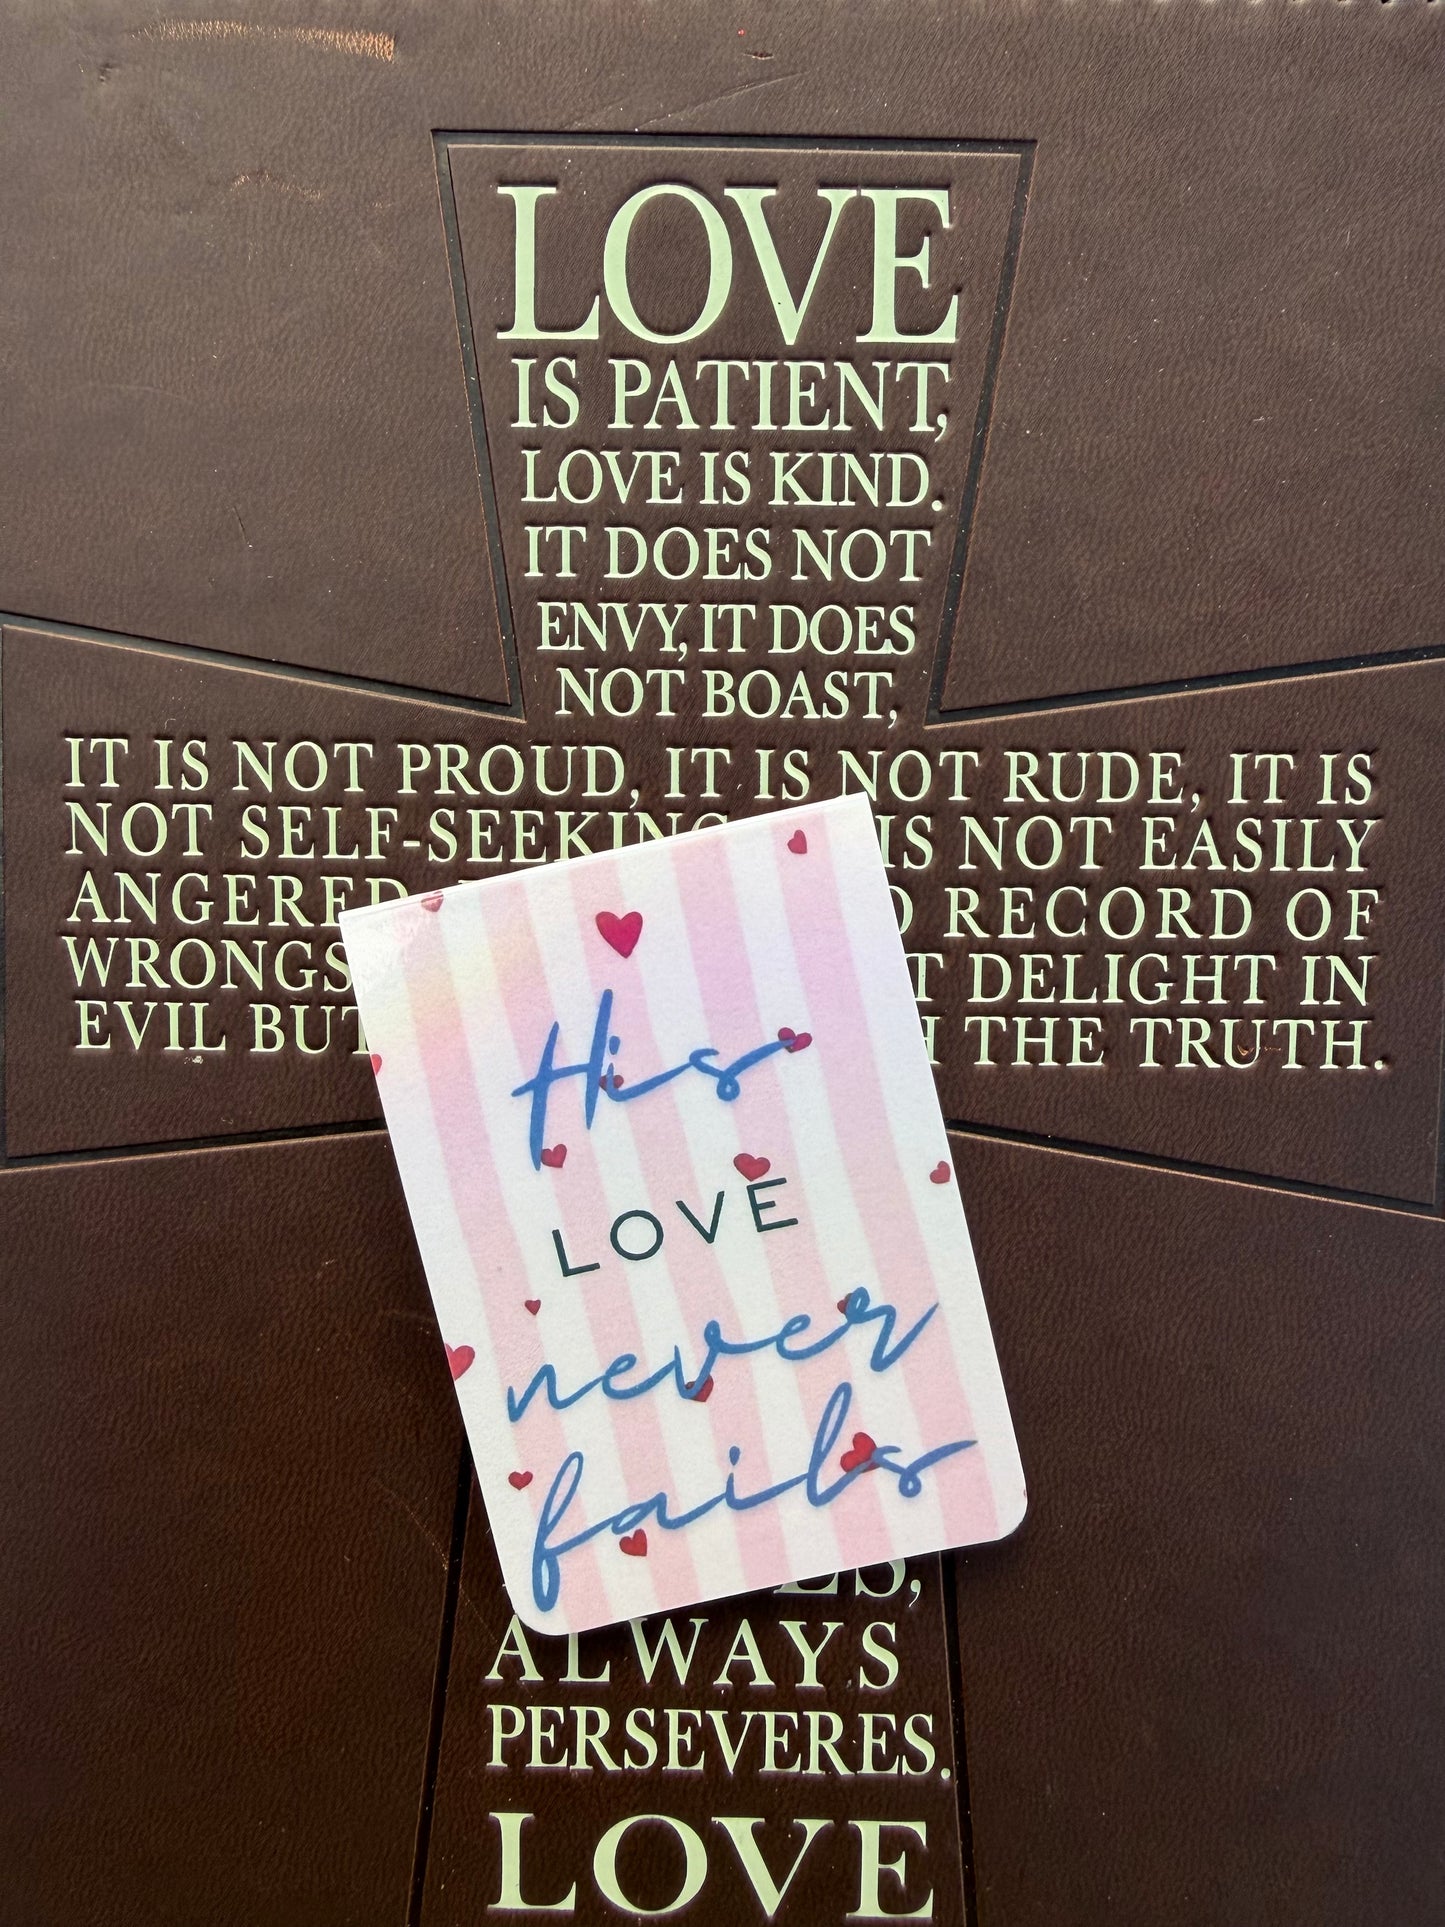 LOVE
IS PATIENT,
LOVE IS KIND.
IT DOES NOT
ENVY, IT DOES
NOT BOAST,
IT IS NOT PROUD, IT IS NOT RUDE, IT IS
NOT SELF-SEEKING IS NOT EASILY
ANGERED RECORD OF
WRONGS DELIGHT IN
EVIL BUT THE TRUTH.
His
LOVE
never
fails
ALWAYS
PERSEVERES.
LOVE